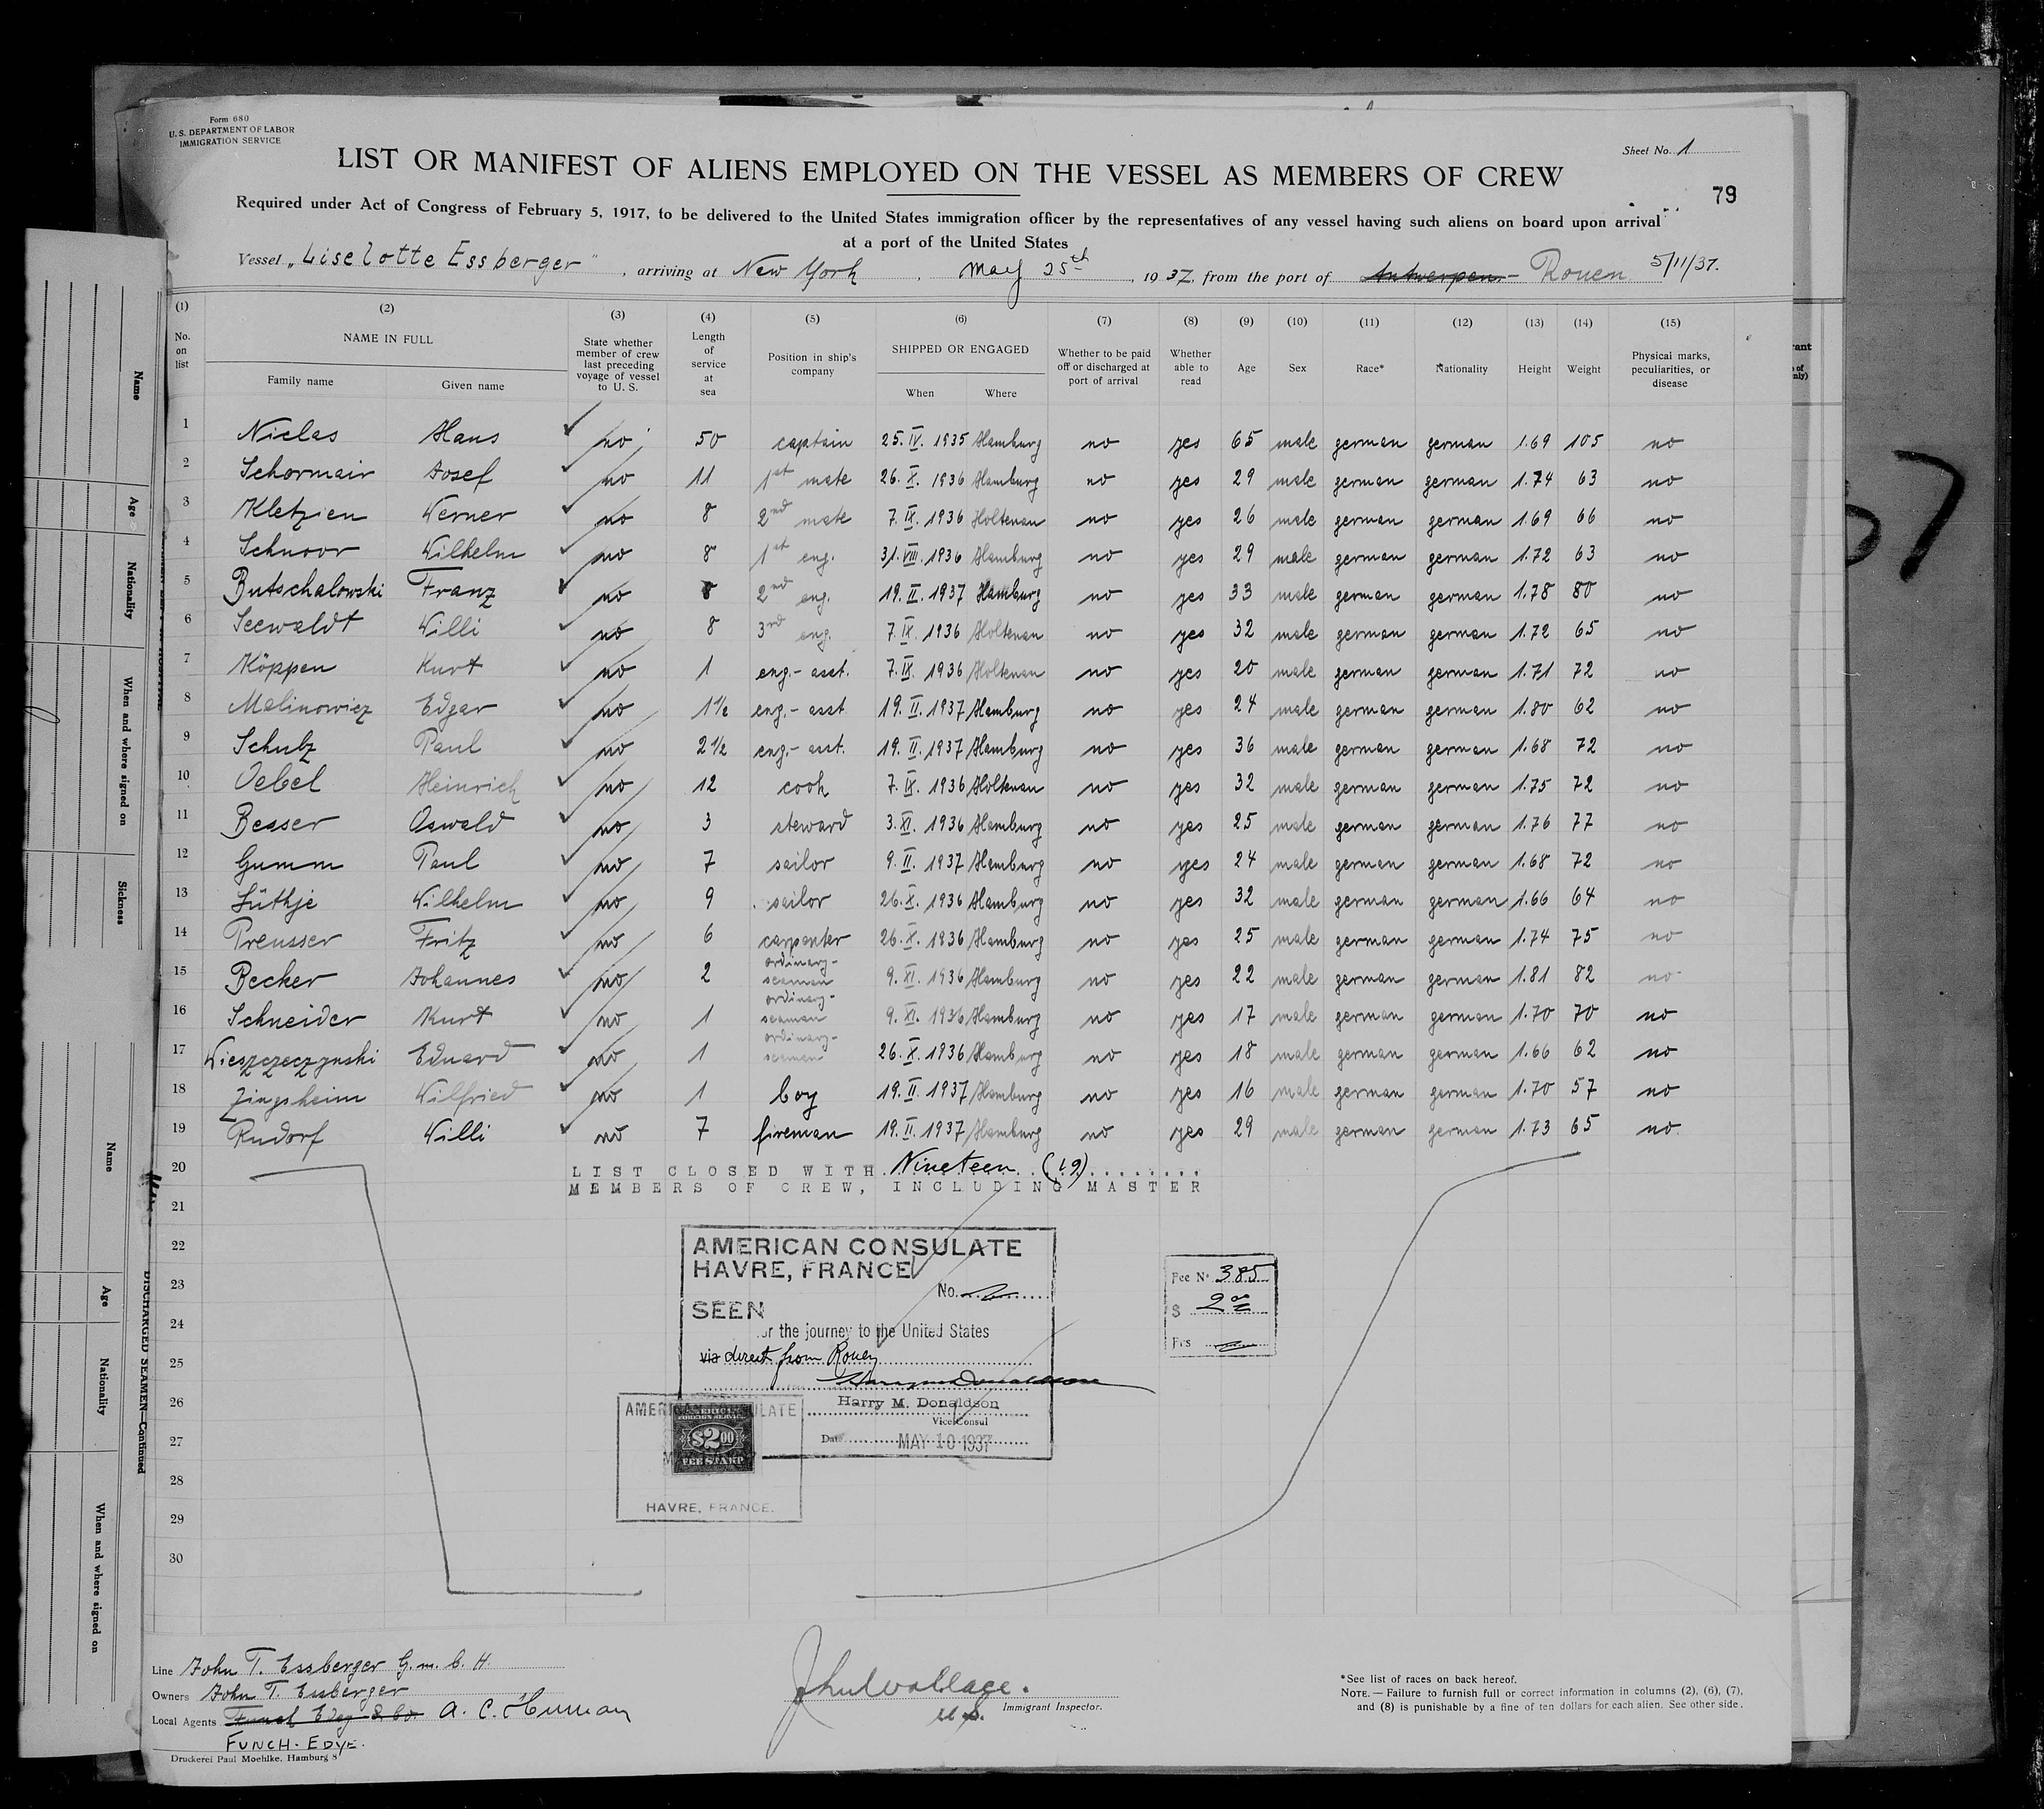 Form 680
U. S. DEPARTMENT OF LABOR
IMMIGRATION SERVICE
Sheet No. 1
LIST OR MANIFEST OF ALIENS EMPLOYED ON THE VESSEL AS MEMBERS OF CREW
79
Required under Act of Congress of February 5, 1917, to be delivered to the United States immigration officer by the representatives of any vessel having such aliens on board upon arrival
at a port of the United States
Vessel „Liselotte Essberger", arriving at New York, May 25th, 1937, from the port of Antwerpen - Rouen 5/11/37.
(1) (2) (3) (4) (5) (6) (7) (8) (9) (10) (11) (12) (13) (14) (15)
No. on list
NAME IN FULL
Family name Given name
State whether member of crew last preceding voyage of vessel to U. S.
Length of service at sea
Position in ship's company
SHIPPED OR ENGAGED
When Where
Whether to be paid off or discharged at port of arrival
Whether able to read
Age Sex Race* Nationality Height Weight
Physical marks, peculiarities, or disease
1 Niclas Hans no 50 captain 25. IV. 1935 Hamburg no yes 65 male german german 1.69 105 no
2 Schormair Josef no 11 1st mate 26. X. 1936 Hamburg no yes 29 male german german 1.74 63 no
3 Kletzien Werner no 8 2nd mate 7. IX. 1936 Holtenau no yes 26 male german german 1.69 66 no
4 Schnoor Wilhelm no 8 1st eng. 31. VIII. 1936 Hamburg no yes 29 male german german 1.72 63 no
5 Butschalowski Franz no 8 2nd eng. 19. II. 1937 Hamburg no yes 33 male german german 1.78 80 no
6 Seewaldt Willi no 8 3rd eng. 7. IX. 1936 Holtenau no yes 32 male german german 1.72 65 no
7 Köppen Kurt no 1 eng.- asst. 7. IX. 1936 Holtenau no yes 20 male german german 1.71 72 no
8 Malinowicz Edgar no 1½ eng.- asst 19. II. 1937 Hamburg no yes 24 male german german 1.80 62 no
9 Schulz Paul no 2½ eng.- asst. 19. II. 1937 Hamburg no yes 36 male german german 1.68 72 no
10 Oebel Heinrich no 12 cook 7. IX. 1936 Holtenau no yes 32 male german german 1.75 72 no
11 Besser Oswald no 3 steward 3. XI. 1936 Hamburg no yes 25 male german german 1.76 77 no
12 Gumm Paul no 7 sailor 9. II. 1937 Hamburg no yes 24 male german german 1.68 72 no
13 Lüthje Wilhelm no 9 sailor 26. X. 1936 Hamburg no yes 32 male german german 1.66 64 no
14 Preusser Fritz no 6 carpenter 26. X. 1936 Hamburg no yes 25 male german german 1.74 75 no
15 Becker Johannes no 2 ordinary-seaman 9. XI. 1936 Hamburg no yes 22 male german german 1.81 82 no
16 Schneider Kurt no 1 ordinary-seaman 9. XI. 1936 Hamburg no yes 17 male german german 1.70 70 no
17 Wieszczeczynski Eduard no 1 ordinary-seaman 26. X. 1936 Hamburg no yes 18 male german german 1.66 62 no
18 Zingsheim Wilfried no 1 boy 19. II. 1937 Hamburg no yes 16 male german german 1.70 57 no
19 Rudorf Willi no 7 fireman 19. II. 1937 Hamburg no yes 29 male german german 1.73 65 no
20 LIST CLOSED WITH Nineteen (19)
MEMBERS OF CREW, INCLUDING MASTER
21
22
23
24
25
26
27
28
29
30
AMERICAN CONSULATE
HAVRE, FRANCE
No.
SEEN
or the journey to the United States
via direct from Rouen
Harry M. Donaldson
Vice Consul
Date MAY 10 1937
Fee No 385
$ 2 00
Frs
AMERICAN CONSULATE
AMERICAN
FOREIGN SERVICE
$2.00
FEE STAMP
HAVRE, FRANCE.
Line John T. Essberger G. m. b. H.
Owners John T. Essberger
Local Agents Funch Edye & Co.
FUNCH-EDYE.
Druckerei Paul Moehlke, Hamburg 8
John Wallace.
Immigrant Inspector.
*See list of races on back hereof.
NOTE.—Failure to furnish full or correct information in columns (2), (6), (7),
and (8) is punishable by a fine of ten dollars for each alien. See other side.
Name
Age
Nationality
When and where signed on
Sickness
Name
Age
Nationality
When and where signed on
DISCHARGED SEAMEN—Continued